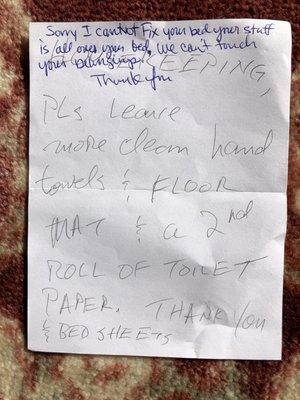 Sorry I cannot Fix your bed your stuff
is all over your bed, we can't touch
your belongings.
Thank you
HOUSEKEEPING,
PLS Leave
more clean hand
towels & FLOOR
MAT & a 2nd
ROLL OF TOILET
PAPER. THANK YOU
& BED SHEETS